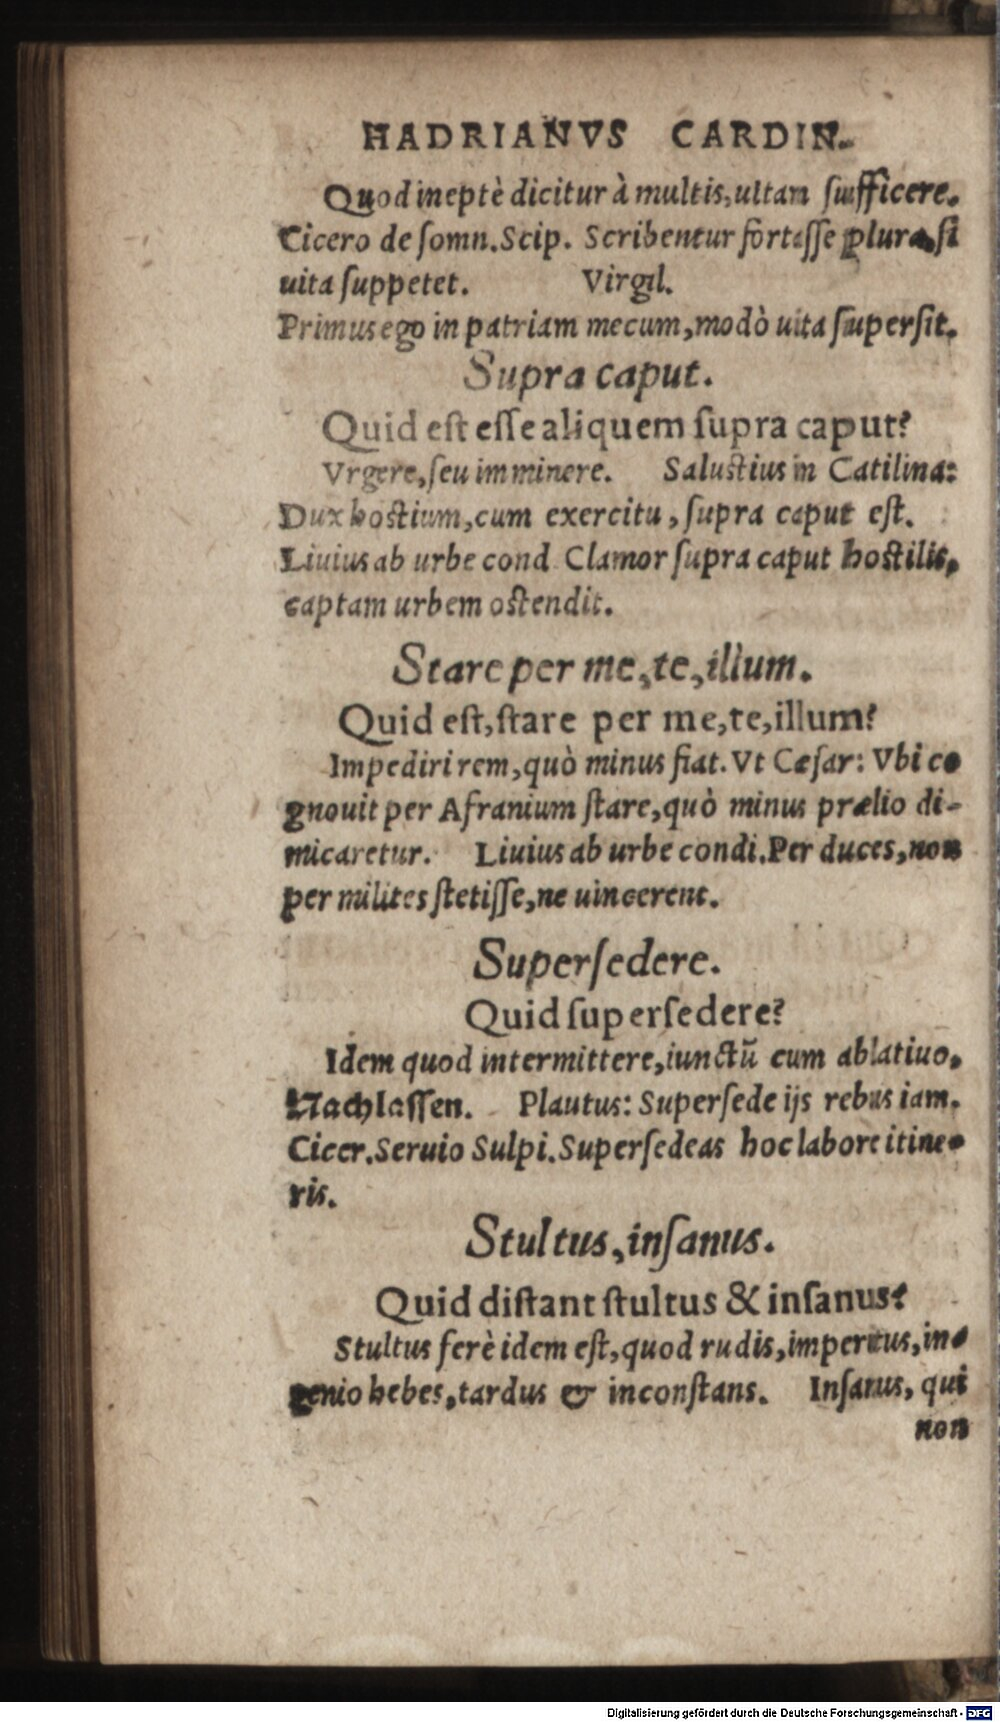 HADRIANVS CARDIN.
Quod ineptè dicitur à multis, uitam sufficere.
Cicero de somn. Scip. Scribentur fortasse plura, si
uita suppetet. Virgil.
Primus ego in patriam mecum, modò uita supersit.
Supra caput.
Quid est esse aliquem supra caput?
Vrgere, seu imminere. Salustius in Catilina:
Dux hostium, cum exercitu, supra caput est.
Liuius ab urbe cond. Clamor supra caput hostilis,
captam urbem ostendit.
Stare per me, te, illum.
Quid est, stare per me, te, illum?
Impediri rem, quò minus fiat. Vt Cæsar: Vbi co
gnouit per Afranium stare, quò minus prælio di-
micaretur. Liuius ab urbe condi. Per duces, non
per milites stetisse, ne uincerent.
Supersedere.
Quid supersedere?
Idem quod intermittere, iunctū cum ablatiuo.
Nachlassen. Plautus: Supersede ijs rebus iam.
Cicer. Seruio Sulpi. Supersedeas hoc labore itine-
ris.
Stultus, insanus.
Quid distant stultus & insanus?
Stultus ferè idem est, quod rudis, imperitus, in-
genio hebes, tardus & inconstans. Insanus, qui
non
Digitalisierung gefördert durch die Deutsche Forschungsgemeinschaft - DFG